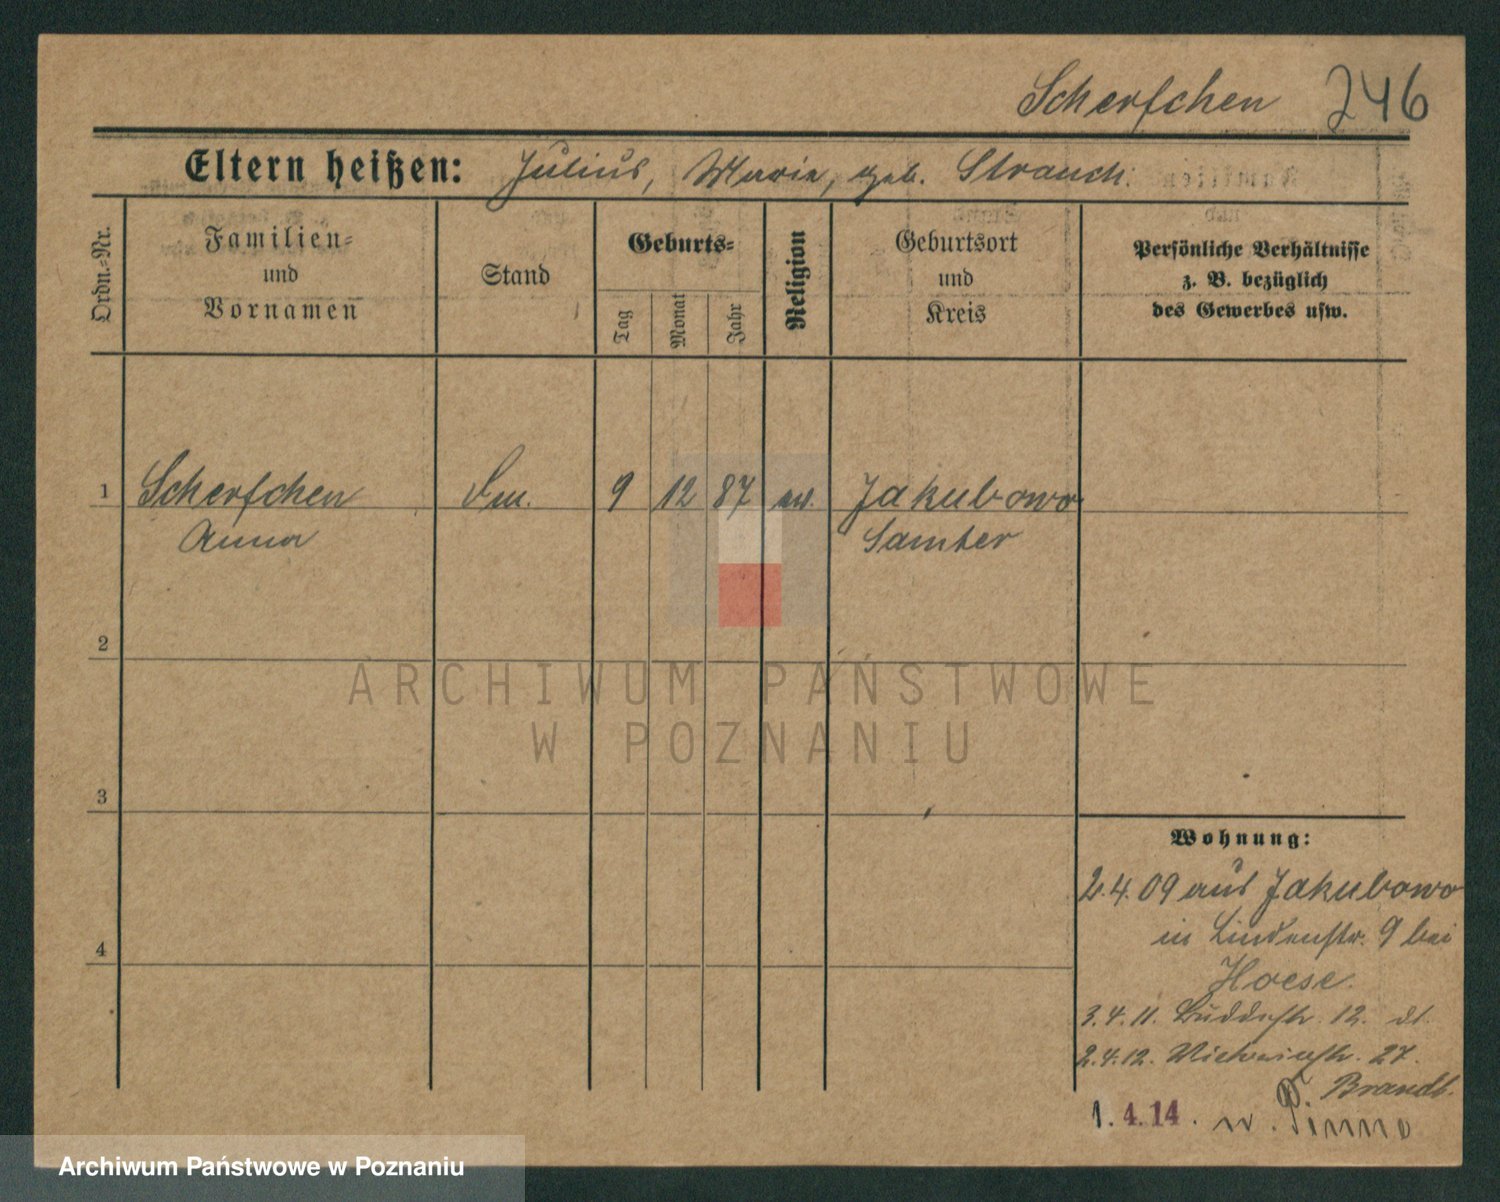 Scherfchen 246
Eltern heißen: Julius, Marie, geb. Strauch.
Ordn.-Nr.
Familien-
und
Vornamen
Stand
Geburts-
Tag
Monat
Jahr
Religion
Geburtsort
und
Kreis
Persönliche Verhältnisse
z. B. bezüglich
des Gewerbes usw.
1 Scherfchen 9 12 87 ev. Jakubowo
Anna Samter
2
ARCHIWUM PAŃSTWOWE
W POZNANIU
3
Wohnung:
2.4.09 aus Jakubowo
in Lindenstr. 9 bei
Hoese.
4
3.4.11. 12. dt.
2.4.12. Victoriastr. 27.
Brandt.
1.4.14. n. Pinne
Archiwum Państwowe w Poznaniu